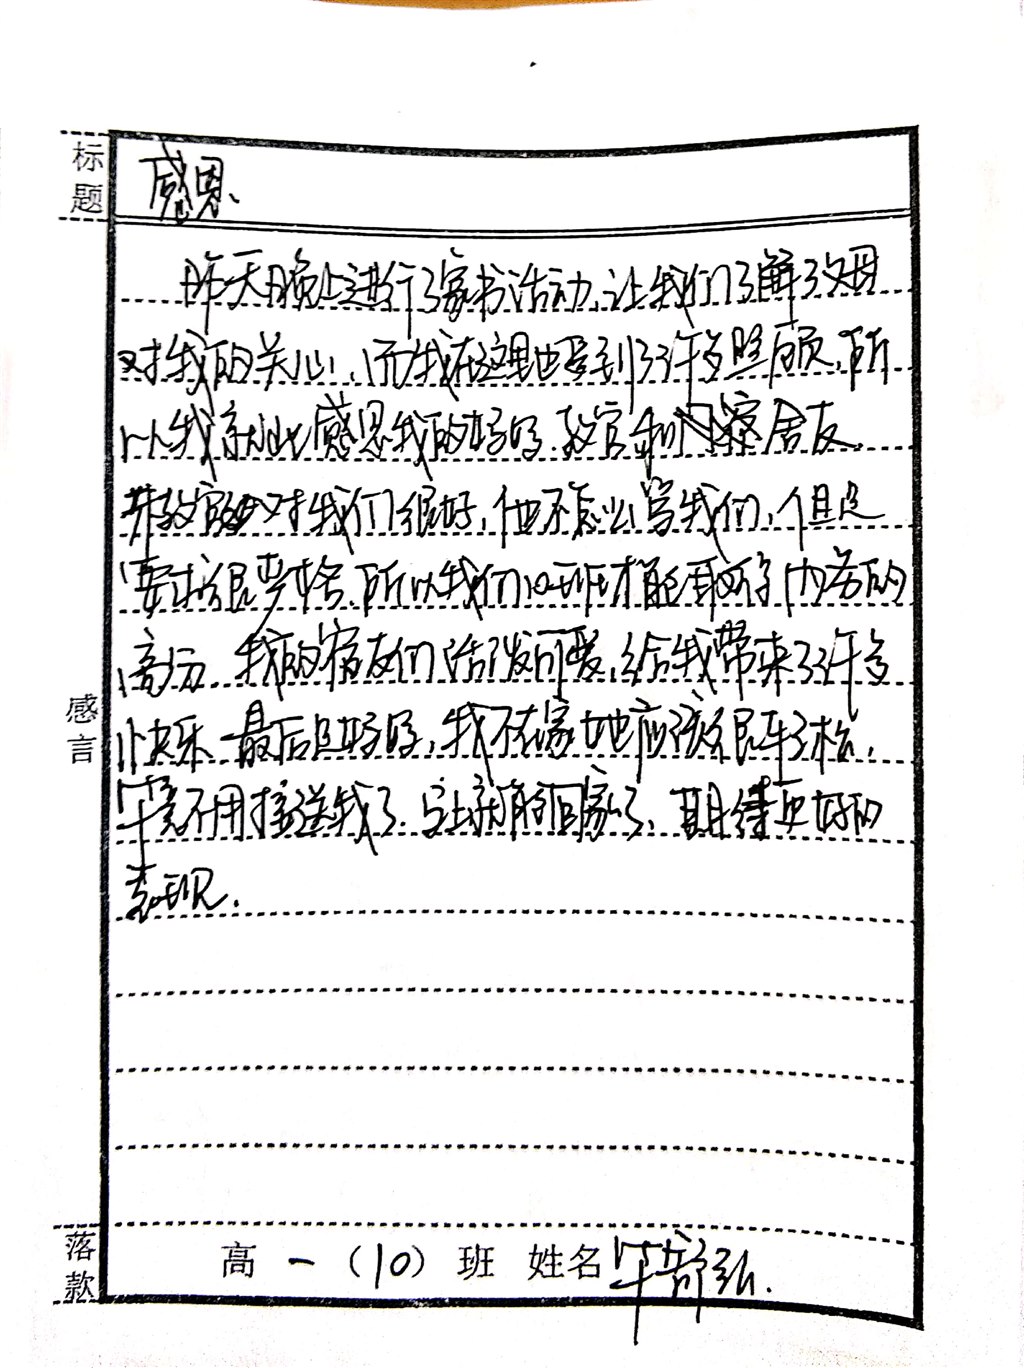 标题
感恩、
昨天晚上进行了家书活动,让我们了解了父母
对我的关心,而我在这里也受到了许多照顾,所
以我就此感恩我的妈妈、教官和舍友。
教官对我们很好,他不怎么骂我们,但是
要求很严格、所以我们10班才能取得内务的
高分。我的宿友们活泼可爱,给我带来了许多
快乐、最后是妈妈,我不在家她应该很轻松,
毕竟不用接送我了、马上就能回家了、期待更好的
表现.
感言
落款 高一(10)班 姓名